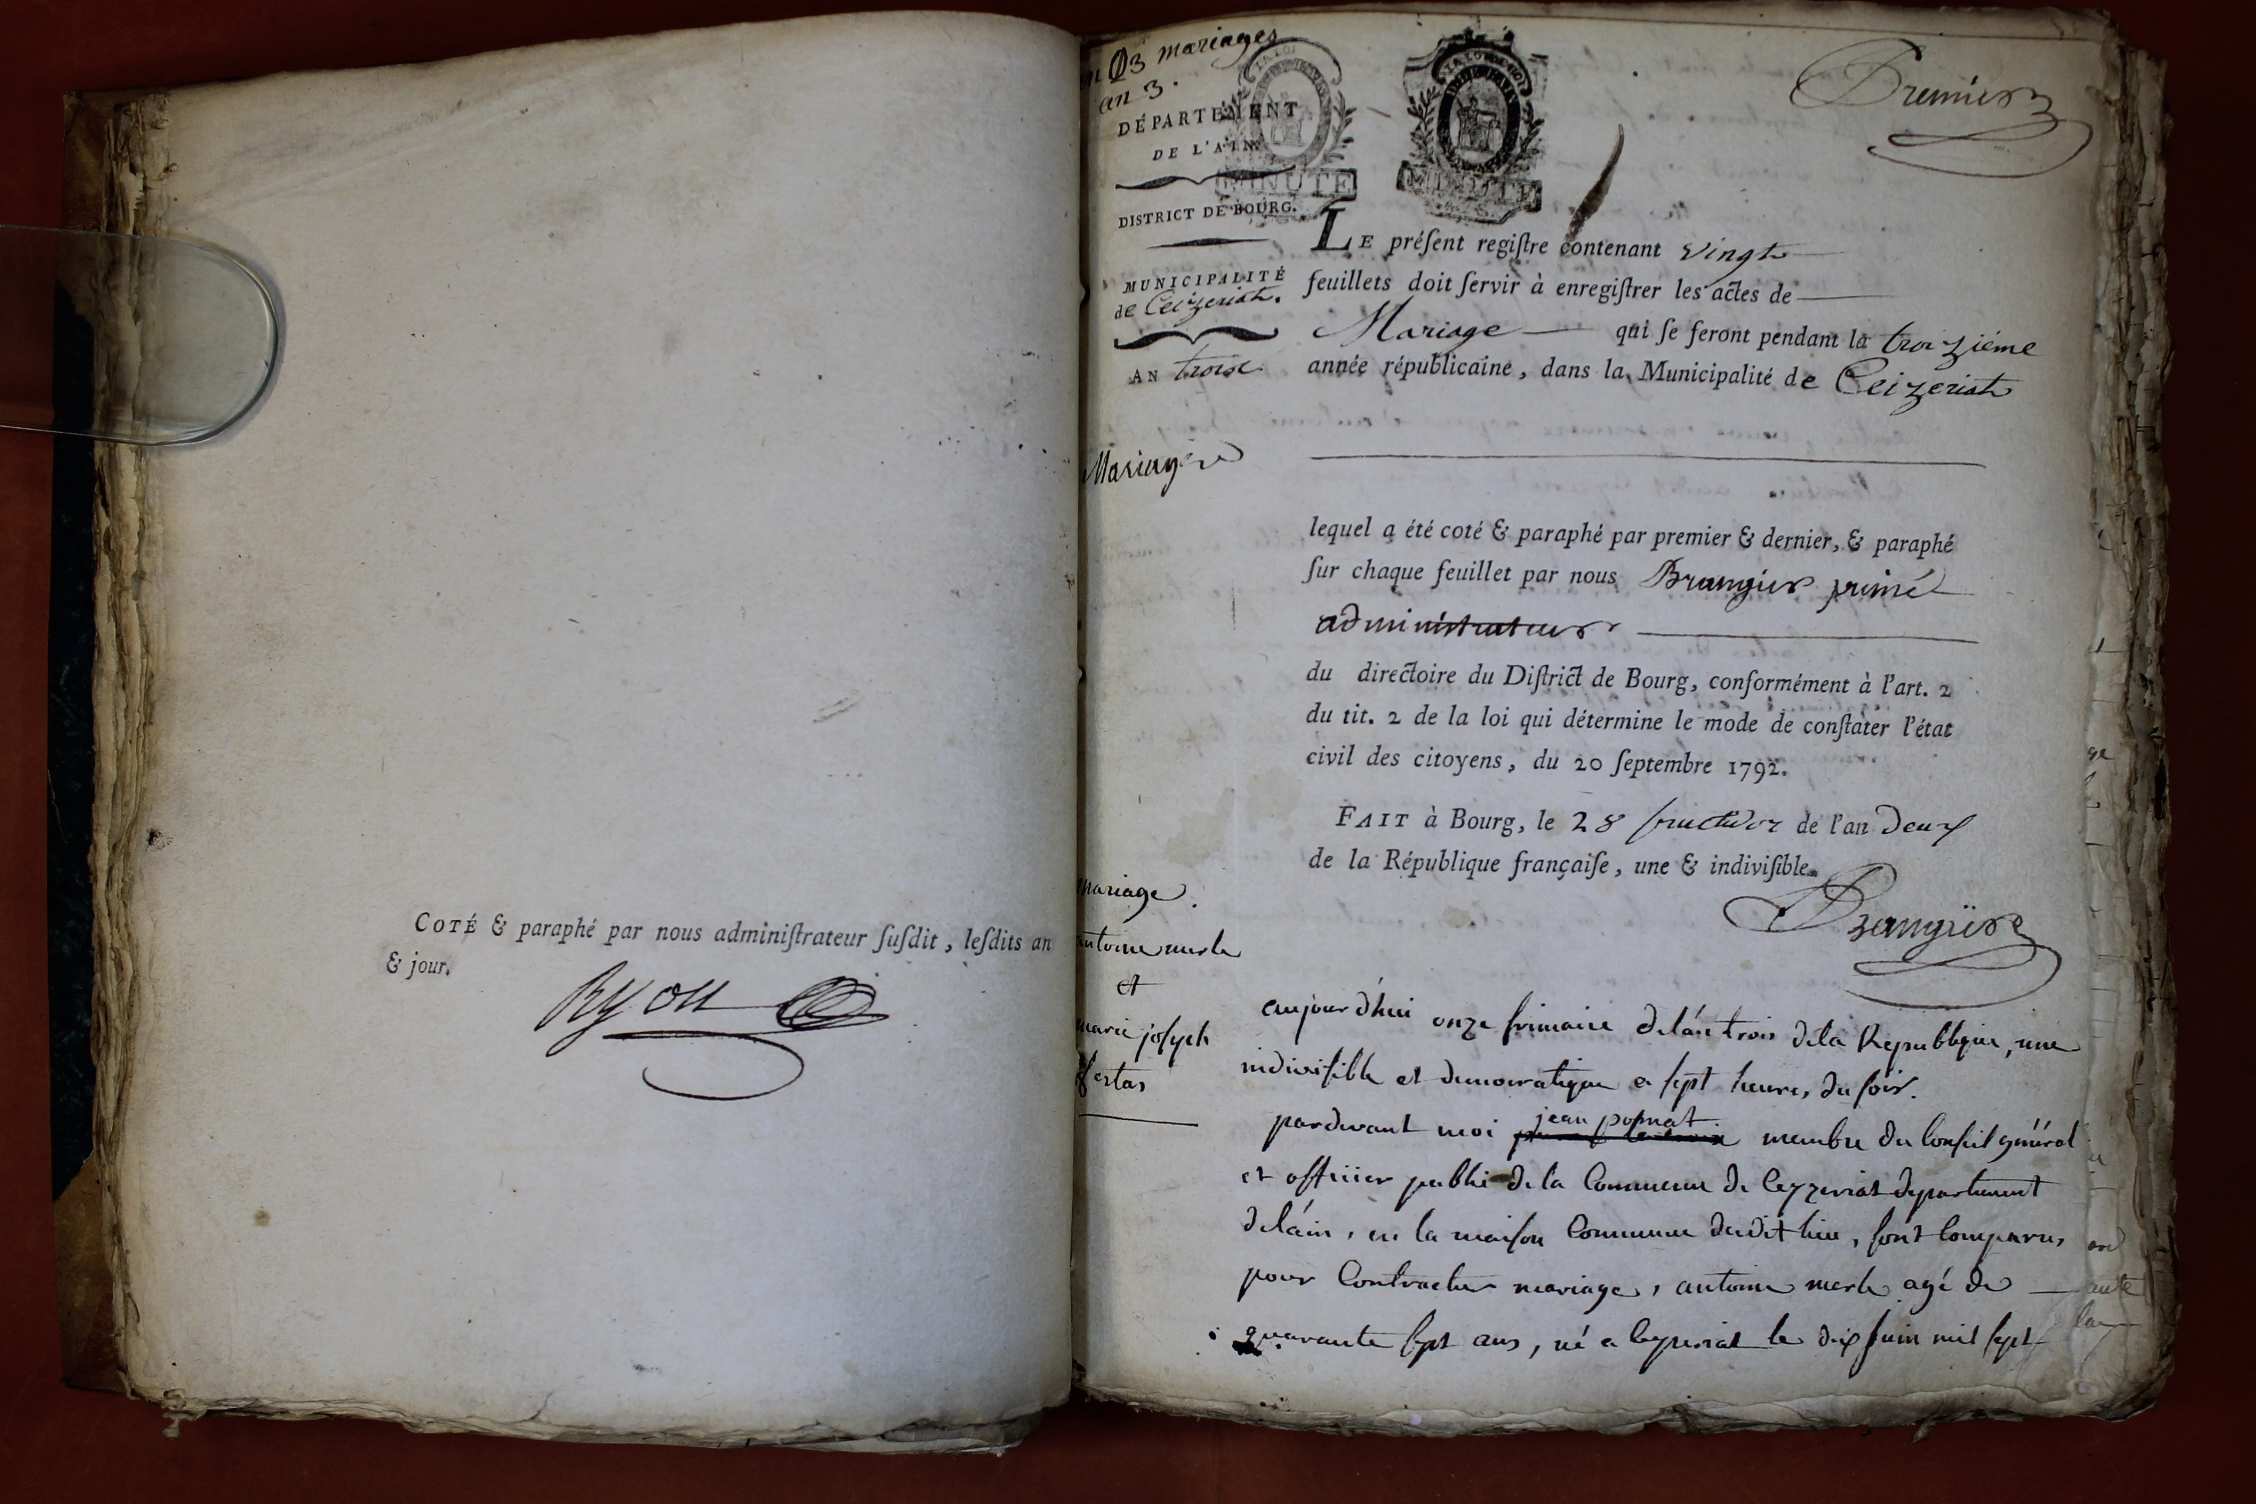 COTÉ & paraphé par nous adminiſtrateur ſuſdit, leſdits an
& jour.
Ryon
mariages
an 3.
DÉPARTEMENT
DE L'AIN.
MINUTE
MINUTE
Premier
DISTRICT DE BOURG.
MUNICIPALITÉ
de Ceizeriat.
AN troix
LE préſent regiſtre contenant vingt
feuillets doit ſervir à enregiſtrer les actes de
Mariage qui ſe feront pendant la troizième
année républicaine, dans la Municipalité de Ceizeriat
Mariages
lequel a été coté & paraphé par premier & dernier, & paraphé
ſur chaque feuillet par nous Brangier
administrateur
du directoire du Diſtrict de Bourg, conformément à l'art. 2
du tit. 2 de la loi qui détermine le mode de conſtater l'état
civil des citoyens, du 20 ſeptembre 1792.
FAIT à Bourg, le 28 fructidor de l'an deux
de la République françaiſe, une & indiviſible.
Brangier
mariage.
antoine merle
et
marie joſeph
aujourd'hui onze frimaire delán trois dela Republique, une
indiviſible et democratique a ſept heures du ſoir.
pardevant moi jean membre du Conſeil général
et officier public de la Commune de Ceyzeriat departement
deláin, en la maiſon Commune dudit lieu, ſont Comparus
pour Contracter mariage, antoine merle agé de
quarante ſept ans, né a Ceyzeriat le dix juin mil ſept